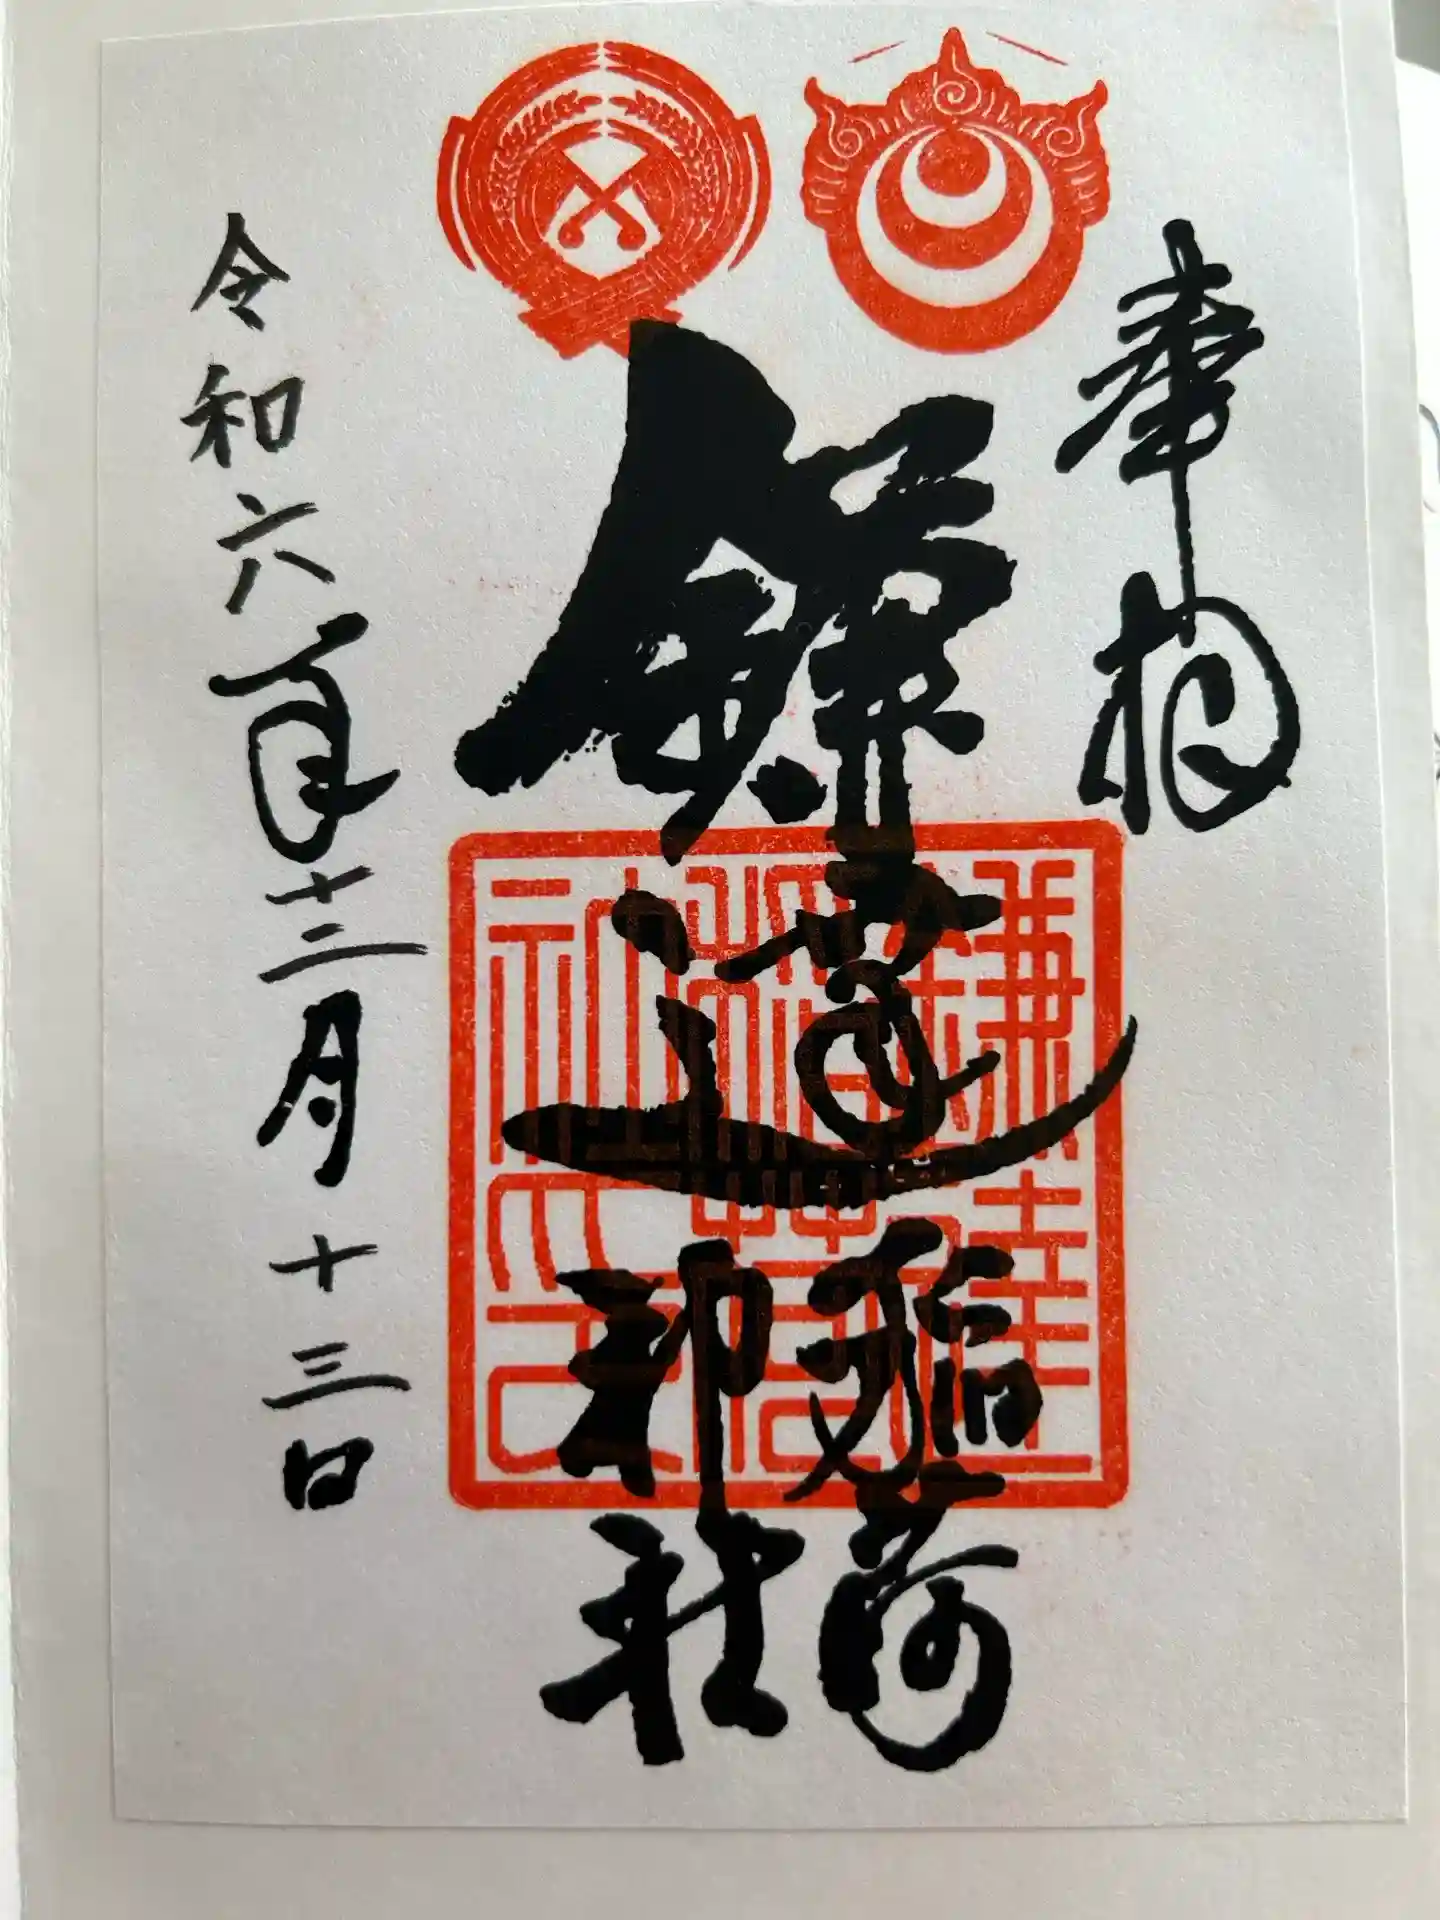 奉拝
鎌達稲荷
神社
令和六年十二月十三日
鎌達
稲荷